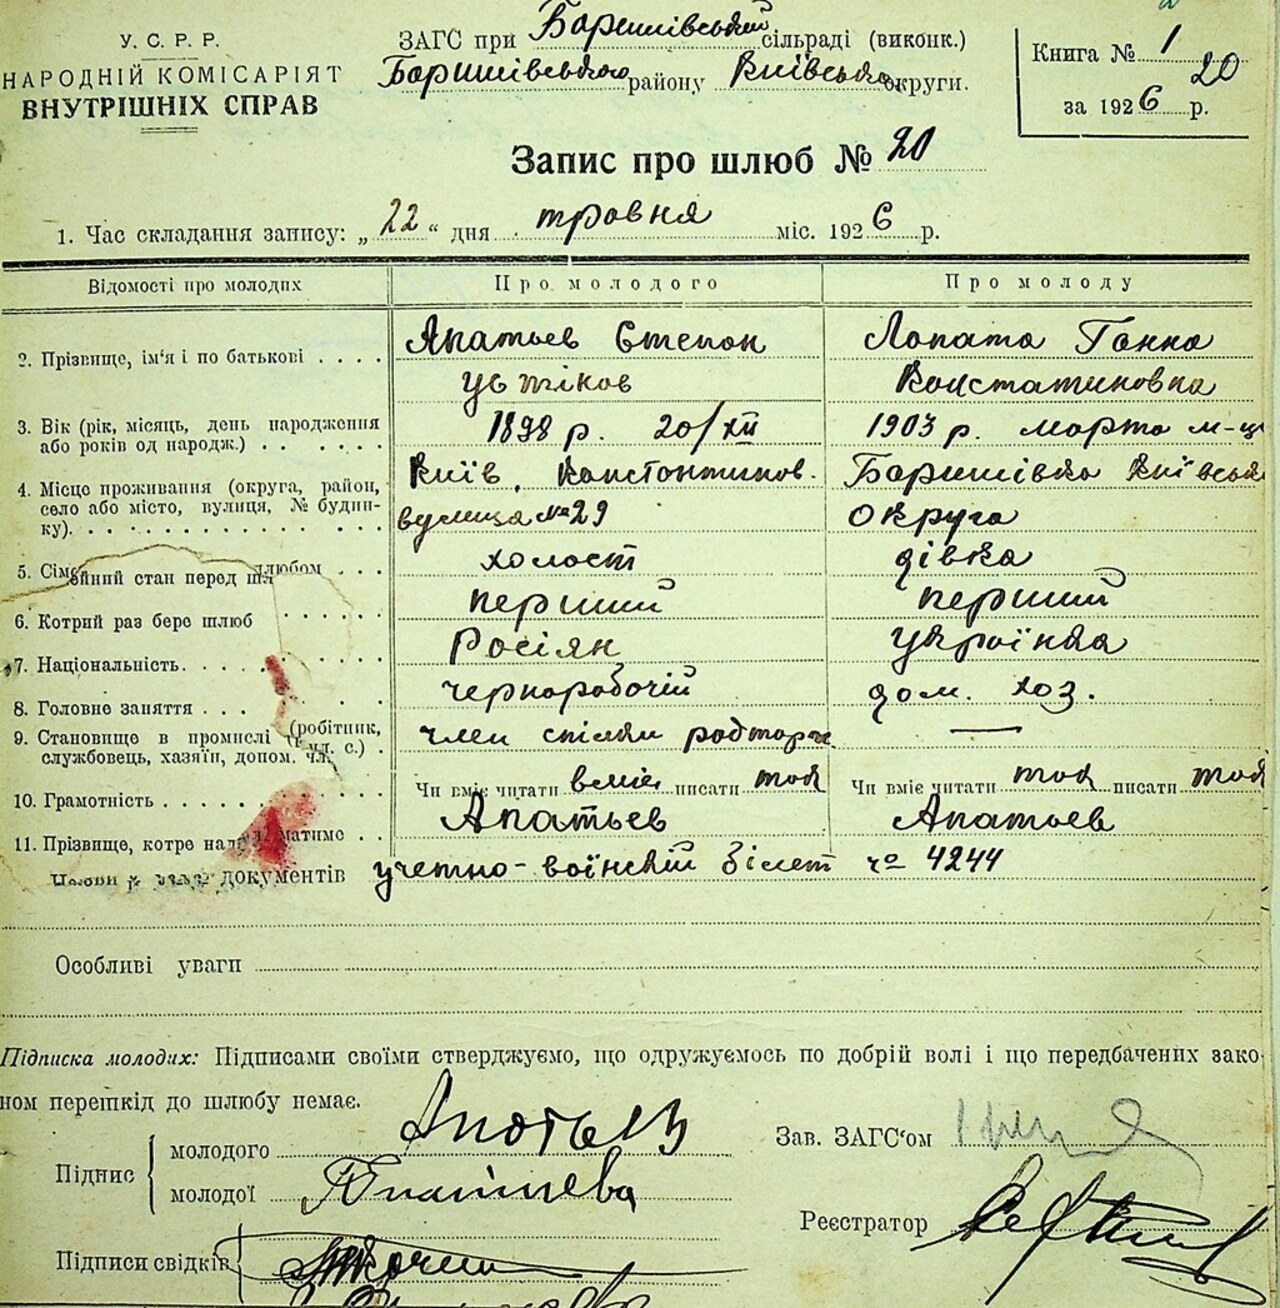 У. С. Р. Р.
НАРОДНІЙ КОМІСАРІЯТ
ВНУТРІШНІХ СПРАВ
ЗАГС при Баришівський сільраді (виконк.)
Баришівського району Київська округи.
Книга № 1
20
за 1926 р.
Запис про шлюб № 20
1. Час складання запису: „22“ дня травня міс. 1926 р.
Відомості про молодих Про молодого Про молоду
2. Прізвище, ім'я і по батькові . . . . Апатьев Степан Лопата Ганна
Устіков Констатиновна
3. Вік (рік, місяць, день народження 1898 р. 20/XII 1903 р. марта м-ця
або років од народж.) . . . . . . .
4. Місце проживання (округа, район, Київ, Константинов. Баришівка Київська
село або місто, вулиця, № будин- вулица № 29 округа
ку). . . . . . . . . . . . . .
5. Сімейний стан перед шлюбом . . . холост дівка
6. Котрий раз бере шлюб . . . . . . перший перший
7. Національність. . . . . . . . . Росіян українка
8. Головне заняття . . . чернорабочій дом. хоз.
9. Становище в промислі (робітник, член спілки робторг. —
службовець, хазяїн, допом. чл. с.) .
10. Грамотність . . . . . . . . . . Чи вміє читати вміє писати так Чи вміє читати так писати так
11. Прізвище, котре матиме . . Апатьев Апатьев
документів учетно-воїнській білет чо 4244
Особливі уваги
Підписка молодих: Підписами своїми стверджуємо, що одружуємось по добрій волі і що передбачених зако-
ном перешкід до шлюбу немає.
Підпис
молодого Апатьев
молодої Апатьева
Зав. ЗАГС'ом
Реєстратор
Підписи свідків